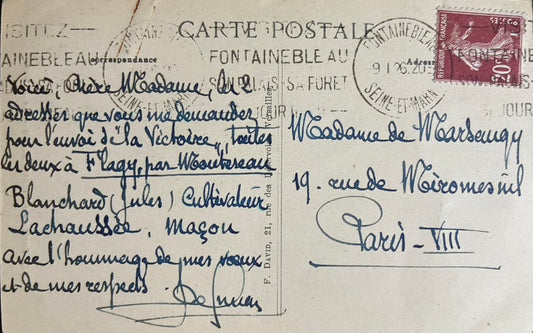 CARTE POSTALE
Correspondance
Adresse
VISITEZ
FONTAINEBLEAU
SON PALAIS SA FORET
SEJOUR
FONTAINEBLEAU
9-1 26 20
SEINE-ET-MARNE
REPUBLIQUE FRANÇAISE
POSTES
20c
Voici, Chère Madame, les 2
adresses que vous me demandez
pour l'envoi de "la Victoire", toutes
les deux à Flagy, par Montereau
Blanchard (Jules) Cultivateur
Lachaussée, Maçon
avec l'hommage de mes vœux
et de mes respects.
F. DAVID, 21, rue des Réservoirs, Versailles
Madame de Marsengy
19, rue de Miromesnil
Paris-VIII